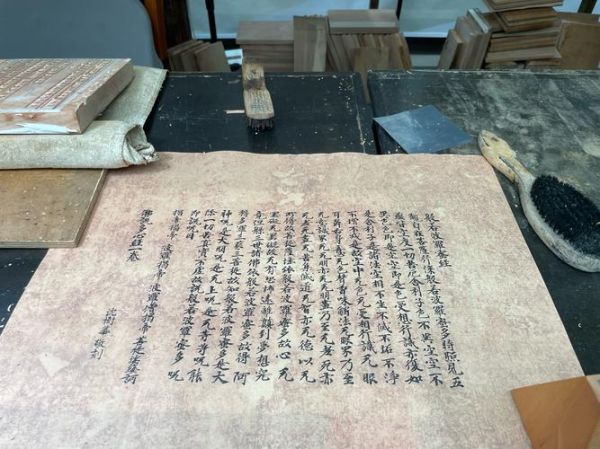 般若波羅蜜經
觀自在菩薩行深般若波羅蜜多時照見五
蘊皆空度一切苦厄舍利子色不異空空不
異色色即是空空即是色受想行識亦復如
是舍利子是諸法空相不生不滅不垢不淨
不增不減是故空中无色无受想行識无眼
耳鼻舌身意无色聲香味觸法无眼界乃至
无意識界无无明亦无无明盡乃至无老死亦
无老死盡无苦集滅道无智亦无得以无
所得故菩提薩埵依般若波羅蜜多故心无
罣礙无罣礙故无有恐怖遠離顛倒夢想究
竟涅槃三世諸佛依般若波羅蜜多故得阿
耨多羅三藐三菩提故知般若波羅蜜多是大
神呪是大明呪是无上呪是无等等呪能
除一切苦真實不虛故說般若波羅蜜多呪
即說呪曰
揭帝揭帝 波羅揭帝 波羅僧揭帝 菩提薩婆訶
沈樹華 敬刻
佛說多心經一卷